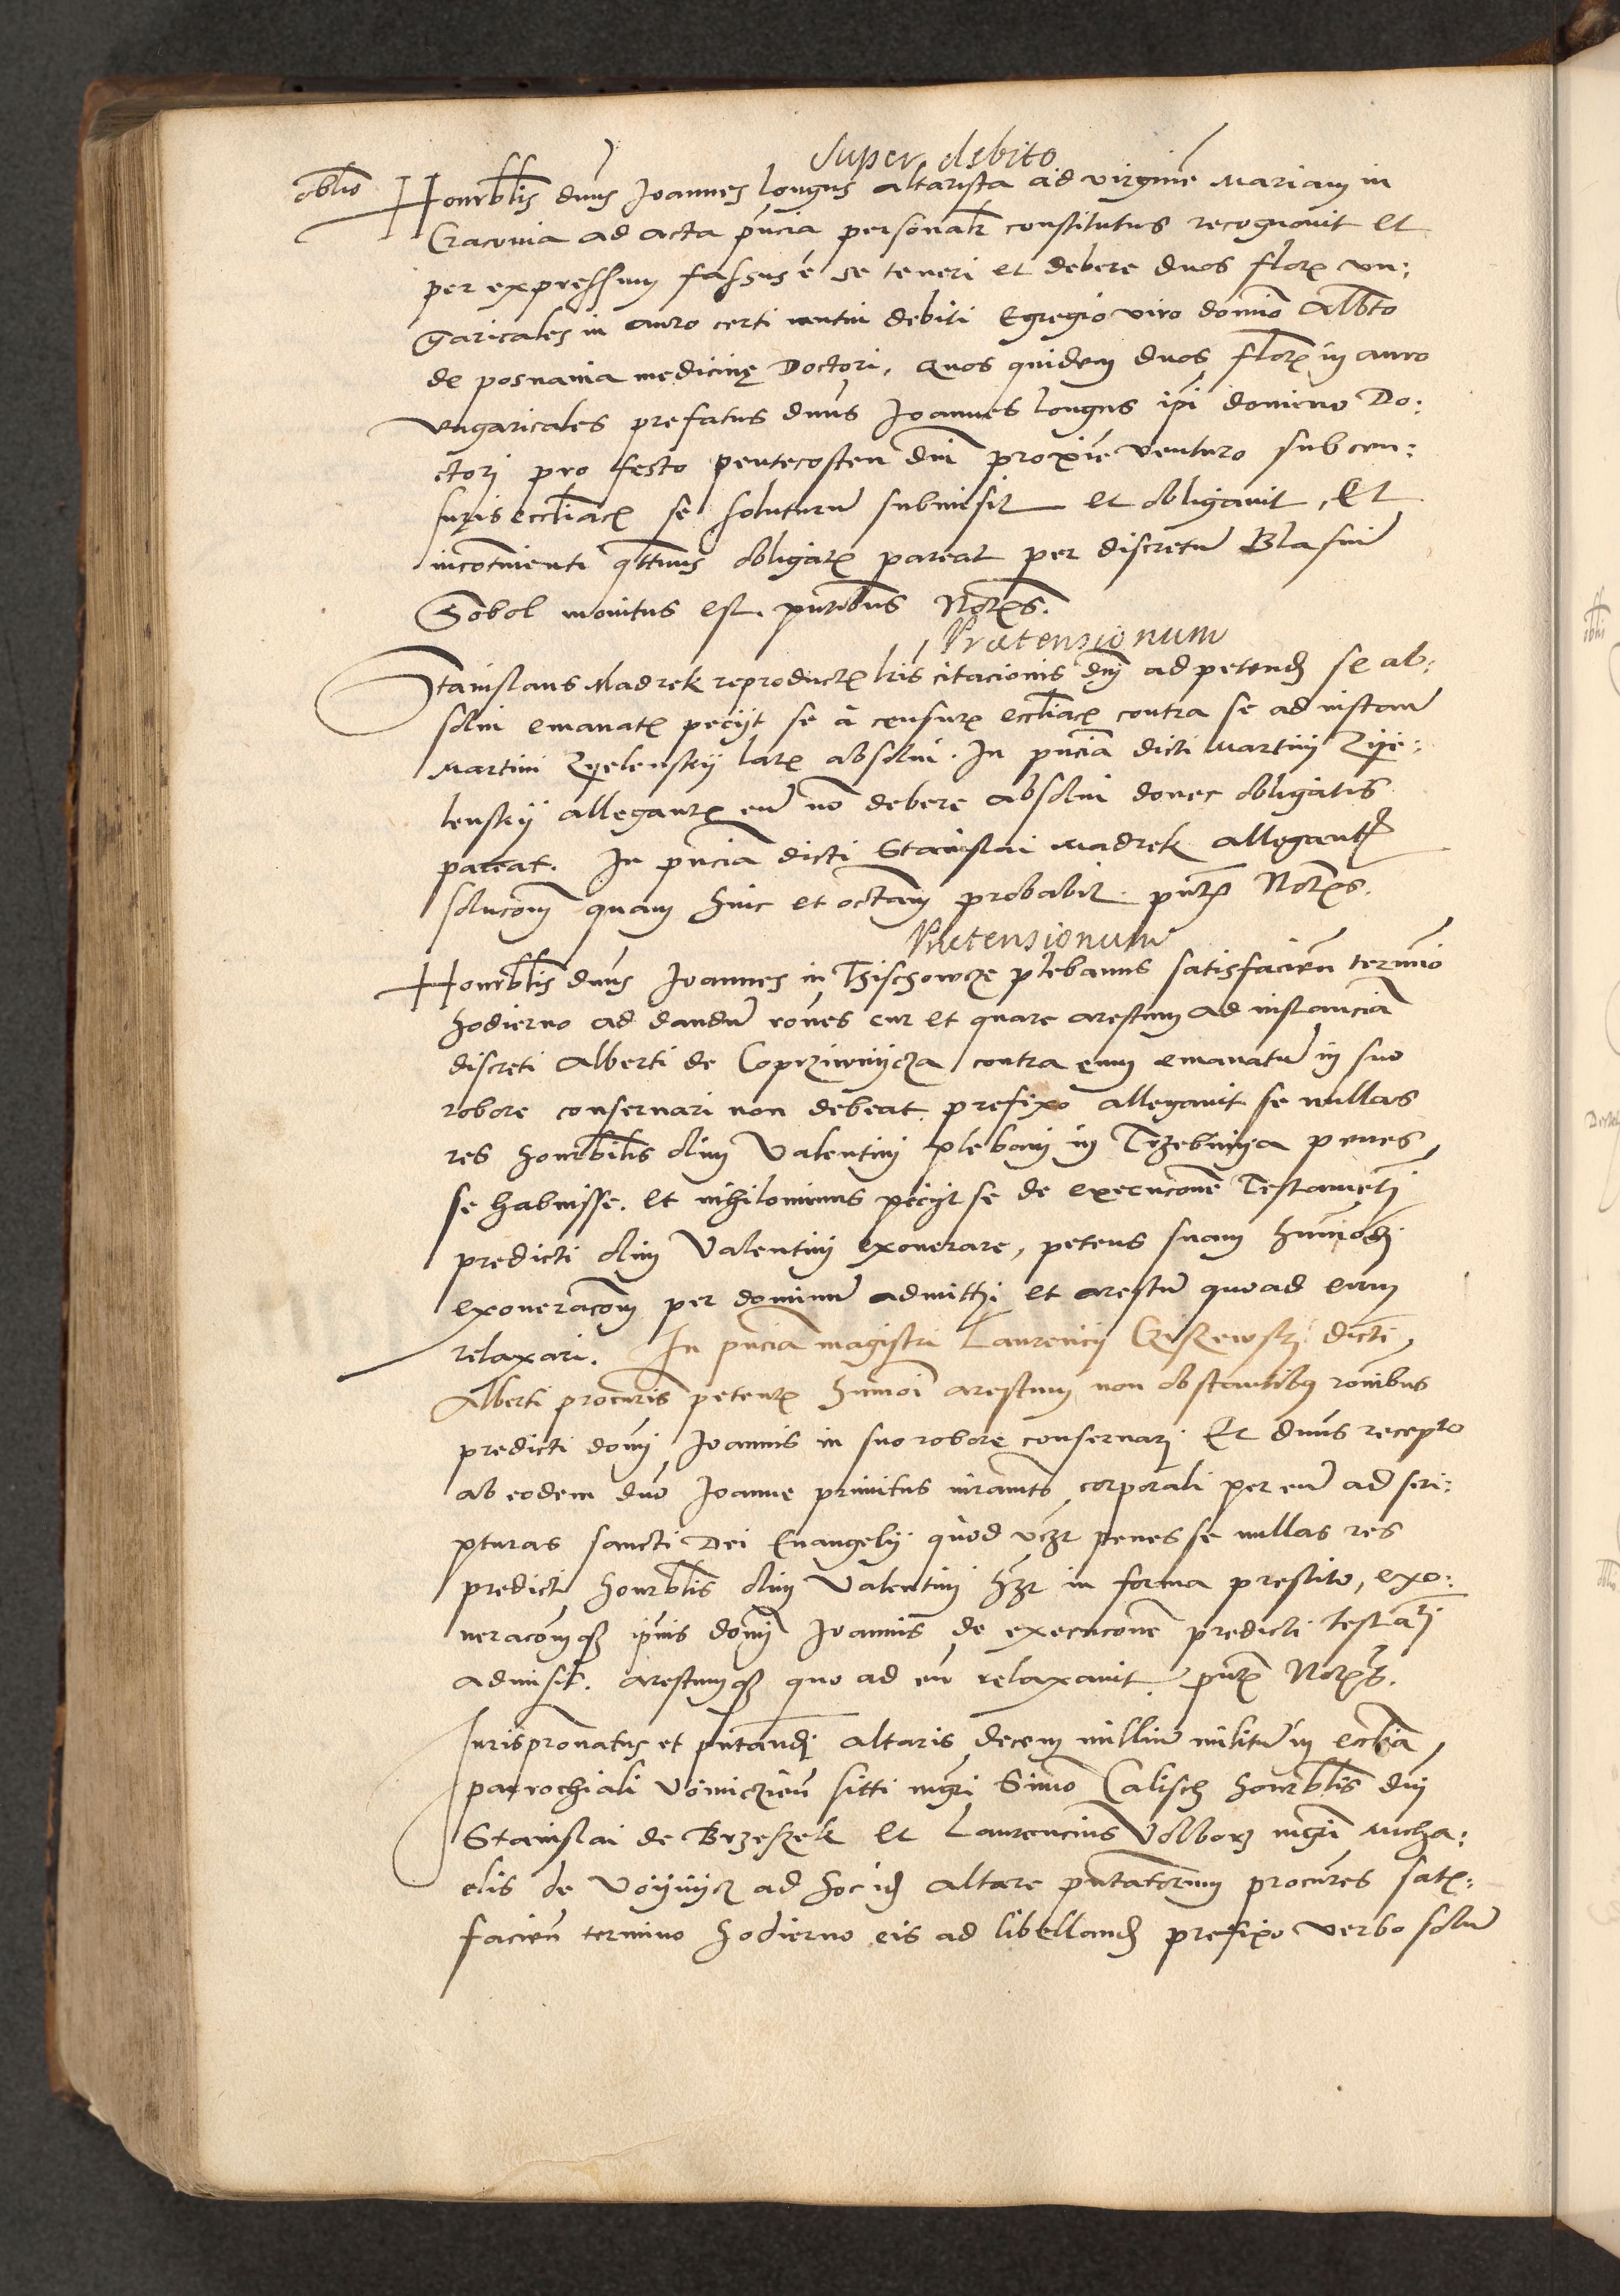 super debito
oblio Honrblis dnus Joannes Longus altarista ad virginē Mariam in
Cracovia ad acta pncia personalr constitutus recognovit et
per expressum fassus ē se teneri et debere duos flor vn:
garicales in auro certi mutui debiti Egregio viro domino Albto
de posnania medicinę Doctori. Quos quidem duos flor in auro
vngaricales prefatus dnus Joannes Longus ipi domino Do:
ctori pro festo pentecosten dni proxie venturo sub cen:
suris eccliac se soluturū submisit et obligavit, Et
incontinenti qttnus obligac pareat per discretū Blasiū
Sobol monitus est. pntibus Notes.
Prætensionum
Stanislaus Madrek reproductis lris citacionis dni ad petend se ab:
solui emanatis peciit se à censuris eccliac contra se ad instam
Martini Zyelenskij latis absolui. In pncia dicti Martini Zije:
lenskij allegantis eum nō debere absolui donec obligatis
pareat. In pncia dicti Stanislai Madrek allegantis
solucom quam hinc et octam probabit. pntibus Notes.
Prætensionum
Honrblis dnus Joannes in Thischowcze plebanus satisfacien termino
hodierno ad dandū rones cur et quare arestum ad instanciā
discreti Alberti de Coprziwnijcza contra eum emanatū in suo
robore conservari non debeat prefixo allegavit se nullas
res honrbilis olim Valentini plebani in Trzebinija penes
se habuisse. et nihilominus peciit se de execucone Testamēti
predicti olim Valentini exonerare, petens suam hmoi
exoneracom per dominū admitti et arestū quo ad eum
relaxari. In pncia magistri Laurencij dicti
Alberti procuris petentis hmoi arestum non obstantibus ronibus
predicti domi Joannis in suo robore conservari Et dnus recepto
ab eodem dno Joanne primitus iuramto corporali per eū ad scri:
pturas sancti Dei Evangelij quod vczr penes se nullas res
predicti honrblis olim Valentini hzr in forma prestito, exo:
neracomq ipius domi Joannis de execucone predicti testati
admisit. arestumq quo ad eū relaxavit. pntibus Notes.
Jurispronatus et pntandi altaris decem milliū militū in ecclia
parrochiali sitti mgri Simo Calisch honrblis dni
Stanislai de Brzeszek et Laurencius Volborz mgri Micha:
elis de Voijnijcz ad hoc id altare pntatorum procures satis:
facien termino hodierno eis ad libelland prefixo verbo solū